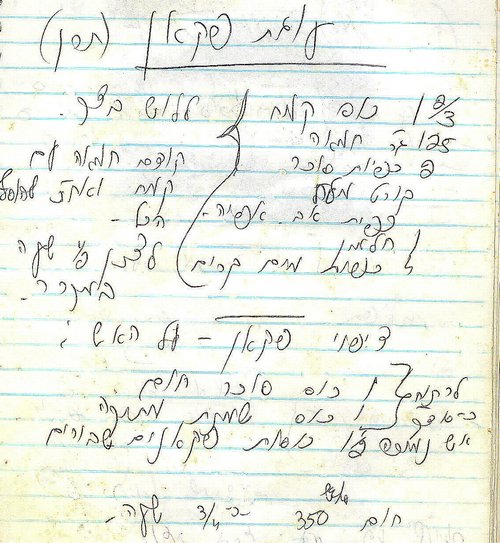 עוגת פקאן (תרן)
1 2/3 כוס קמח
125 גר' חמאה
2 כפיות סוכר
קורט מלח
כפית אב. אפיה
1 חלמון
2 כפות מים קרים
ללוש בצק:
קודם חמאה עם
קמח ואח"כ להוסיף
הכל -
לצנן 1/2 שעה
במקרר.
ציפוי פקאן - על האש:
1 כוס סוכר חום
1 כוס שמנת מתוקה
1 1/2 כוסות פקאנים שבורים
להקציף
אש נמוכה
חום 350 כ- 3/4 שעה.